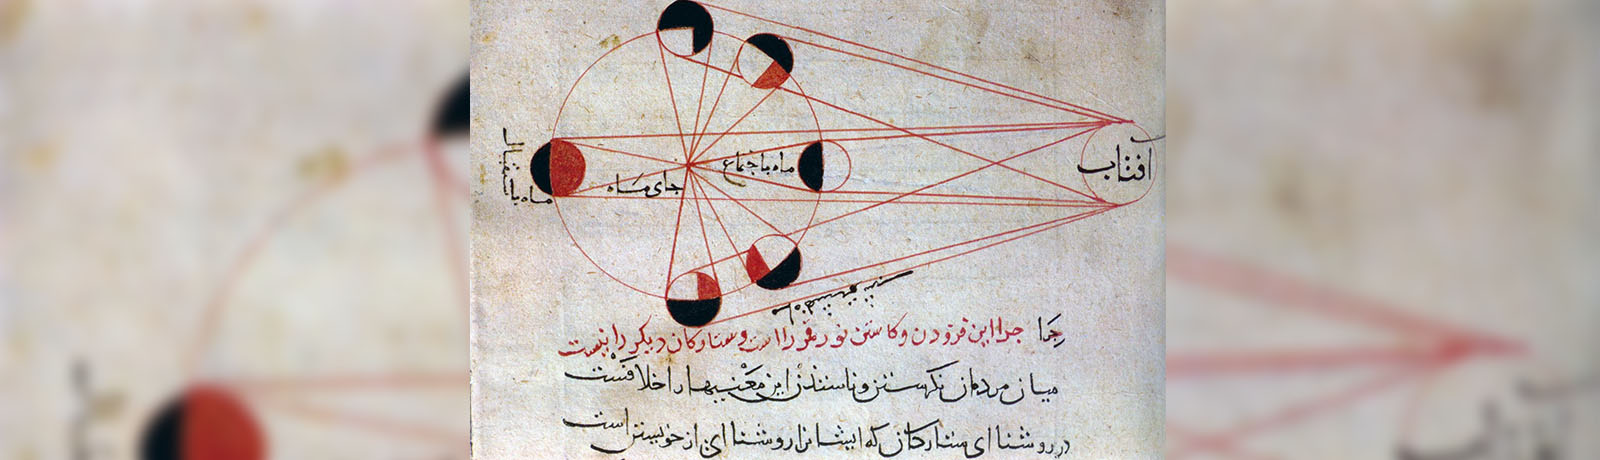 افتاب
ماه باجتماع
جای ماه
ماه با
چرا این فزودن وکاستن نور قمر را است وستارکان دیکر را نیست
میان مردمان نکرستن این معنیها را اخلافست
در روشنای ستارکان که ایشانرا روشنای از خویشتن است